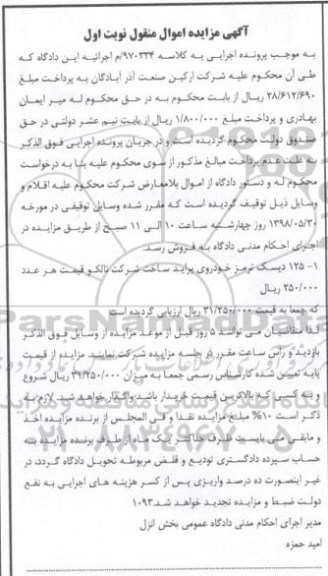 آگهی مزایده اموال منقول نوبت اول
به موجب پرونده اجرایی به کلاسه ۹۷۰۳۳۴/م اجرائیه این دادگاه که
طی آن محکوم علیه شرکت ارکین صنعت آذر آبادگان به پرداخت مبلغ
۲۸/۶۱۲/۶۹۰ ریال از بابت محکوم به در حق محکوم له میر ایمان
بهادری و پرداخت مبلغ ۱/۸۰۰/۰۰۰ ریال از بابت نیم عشر دولتی در حق
صندوق دولت محکوم گردیده است و در جریان پرونده اجرایی فوق الذکر
به علت عدم پرداخت مبالغ مذکور از سوی محکوم علیه بنا به درخواست
محکوم له و دستور دادگاه از اموال بلامعارض شرکت محکوم علیه اقلام و
وسایل ذیل توقیف گردیده است که مقرر شده وسایل توقیفی در مورخه
۱۳۹۸/۰۵/۳۰ روز چهارشنبه ساعت ۱۰ الی ۱۱ صبح از طریق مزایده در
اجرای احکام مدنی دادگاه به فروش رسد
۱- ۱۲۵ دیسک ترمز خودروی پراید ساخت شرکت نالکو قیمت هر عدد
۲۵۰/۰۰۰ ریال
که جمعا به قیمت ۳۱/۲۵۰/۰۰۰ ریال ارزیابی گردیده است
لذا متقاضیان می توانند ۵ روز قبل از موعد مزایده از وسایل فوق الذکر
بازدید و راس ساعت مقرر در جلسه مزایده شرکت نمایند. مزایده از قیمت
پایه تعیین شده کارشناس رسمی جمعا به میزان ۳۱/۲۵۰/۰۰۰ ریال شروع
و به کسی که بالاترین قیمت خریدار باشد واگذار خواهد شد. لازم به
ذکر است ۱۰% مبلغ مزایده نقدا و فی المجلس از برنده مزایده اخذ
و مابقی می بایست ظرف حداکثر یک ماه از طرف برنده مزایده به
حساب سپرده دادگستری تودیع و قبض مربوطه تحویل دادگاه گردد، در
غیر اینصورت ده درصد واریزی پس از کسر هزینه های اجرایی به نفع
دولت ضبط و مزایده تجدید خواهد شد.۱۰۹۳
مدیر اجرای احکام مدنی دادگاه عمومی بخش انزل
امید حمزه
ParsNamadData
۰۲۱-۸۸۳۴۹۶۷۰-۵